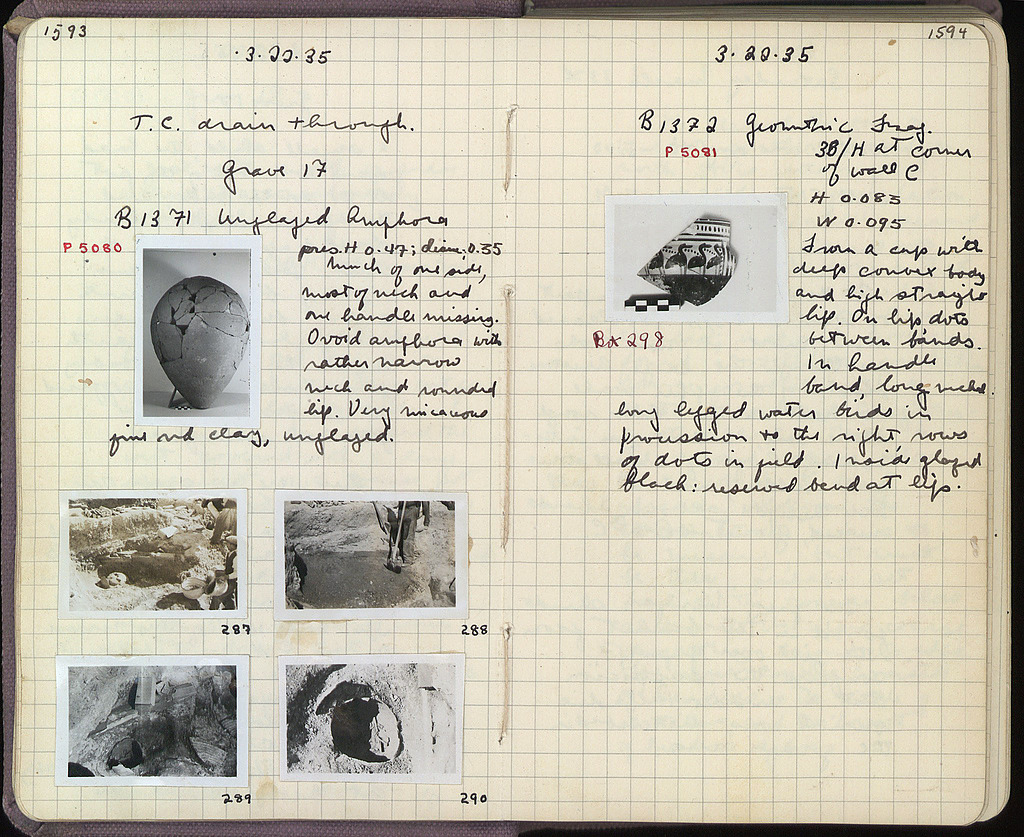 1593
3·20·35
T.C. drain through.
Grave 17
B 1371 Unglazed Amphora
P 5080
pres. H 0.47; diam. 0.35
Much of one side,
most of neck and
one handle missing.
Ovoid amphora with
rather narrow
neck and rounded
lip. Very micaceous
fine red clay, unglazed.
287
288
289
290
1594
3·20·35
B 1372 Geometric Frag.
P 5081
3B/H at corner
of wall C
H 0.083
W 0.095
From a cup with
deep convex body
and high straight
lip. On lip dots
between bands.
In handle
band, long necked
long legged water birds in
procession to the right rows
of dots in field. Inside glazed
black: reserved band at lip.
298